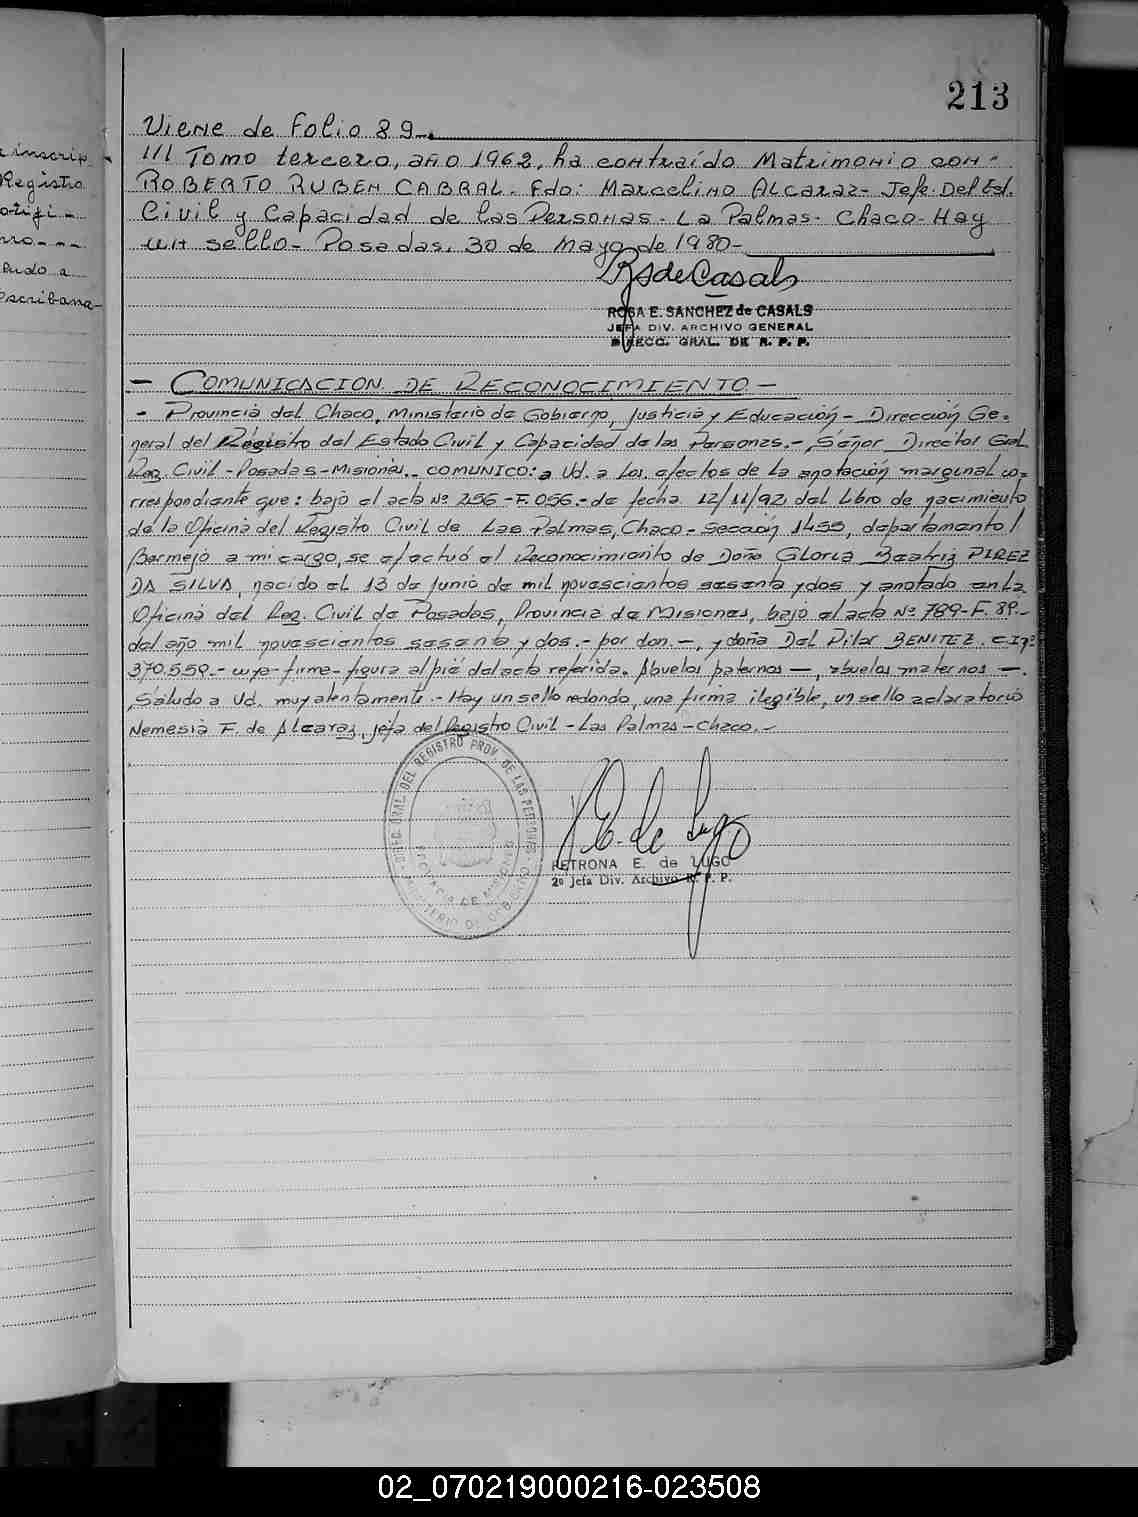 213
Viene de Folio 89-.
/// Tomo tercero, año 1962, ha contraído Matrimonio con-
ROBERTO RUBEN CABRAL. Fdo: Marcelino ALCARAZ- Jefe Del Est.
Civil y Capacidad de las Personas. La Palmas- Chaco- Hay
un sello- Posadas, 30 de Mayo de 1980-
RSdeCasals
ROSA E. SANCHEZ de CASALS
JEFA DIV. ARCHIVO GENERAL
DIRECC. GRAL. DE R. P. P.
- COMUNICACION DE RECONOCIMIENTO -
- Provincia del Chaco, Ministerio de Gobierno, Justicia y Educación - Dirección Ge-
neral del Registro del Estado Civil y Capacidad de las Personas.- Señor Director Gral.
Reg. Civil - Posadas - Misiones.- COMUNICO: a Ud. a los efectos de la anotación marginal co-
rrespondiente que: bajo el acta Nº 256 - F. 056.- de fecha 12/11/92 del Libro de nacimiento
de la Oficina del Registro Civil de Las Palmas, Chaco - Sección 1455, departamento /
Bermejo a mi cargo, se efectuó el Reconocimiento de Doña GLORIA Beatriz PIREZ
DA SILVA, nacido el 13 de Junio de mil novescientos sesenta y dos y anotado en La
Oficina del Reg. Civil de Posadas, Provincia de Misiones, bajo el acta Nº 789- F. 89.-
del año mil novescientos sesenta y dos.- por don. -, y doña Del Pilar BENITEZ. C.I.Nº
370.559.- cuya- firma- figura al pié del acta referida. Abuelos paternos —, abuelos maternos —.
Saludo a Ud. muy atentamente.- Hay un sello redondo, una firma ilegible, un sello aclaratorio
Nemesia F. de Alcaraz, jefa del Registro Civil - Las Palmas - Chaco.-
DIREC. GRAL. DEL REGISTRO PROV. DE LAS PERSONAS
PROVINCIA DE MISIONES
MINISTERIO DE GOBIERNO
P.E. de Lugo
PETRONA E. de LUGO
2º Jefa Div. Archivo R. P. P.
inscrip
Registro
pudo a
escribana-
02_070219000216-023508